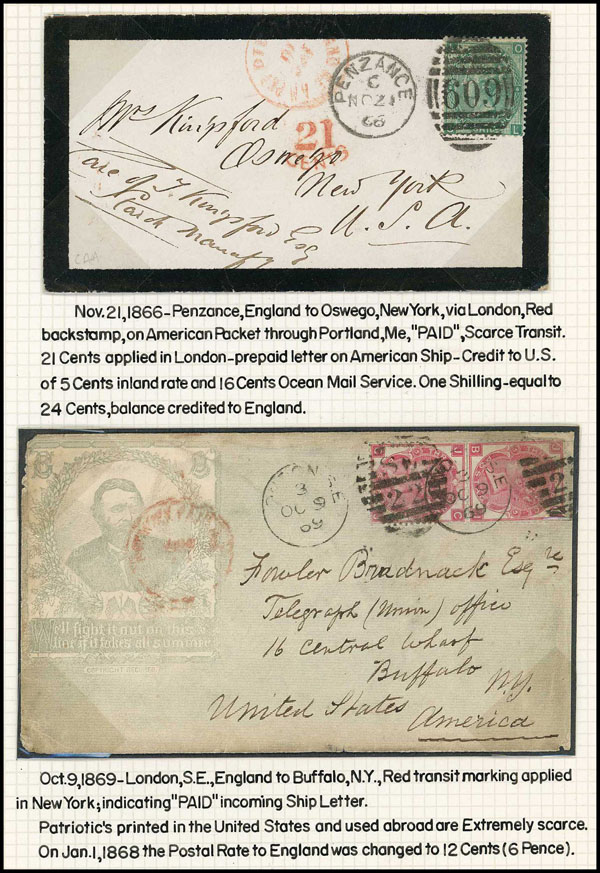 PENZANCE
C
NO 21
66
609
O
L
21
CENTS
Mrs Kingsford
Oswego
New York
U.S.A.
Care of T. Kingsford Esq
Starch Manufy
CAA
Nov. 21, 1866-Penzance, England to Oswego, New York, via London, Red
backstamp, on American Packet through Portland, Me, "PAID", Scarce Transit.
21 Cents applied in London-prepaid letter on American Ship-Credit to U.S.
of 5 Cents inland rate and 16 Cents Ocean Mail Service. One Shilling-equal to
24 Cents, balance credited to England.
3
OC 9
69
Fowler Bradnack Esqre
Telegraph (Union) office
16 Central Wharf
Buffalo
N.Y.
United States
America
We'll fight it out on this
line if it takes all summer.
Oct. 9, 1869-London, S.E., England to Buffalo, N.Y., Red transit marking applied
in New York; indicating "PAID" incoming Ship Letter.
Patriotic's printed in the United States and used abroad are Extremely scarce.
On Jan. 1, 1868 the Postal Rate to England was changed to 12 Cents (6 Pence).